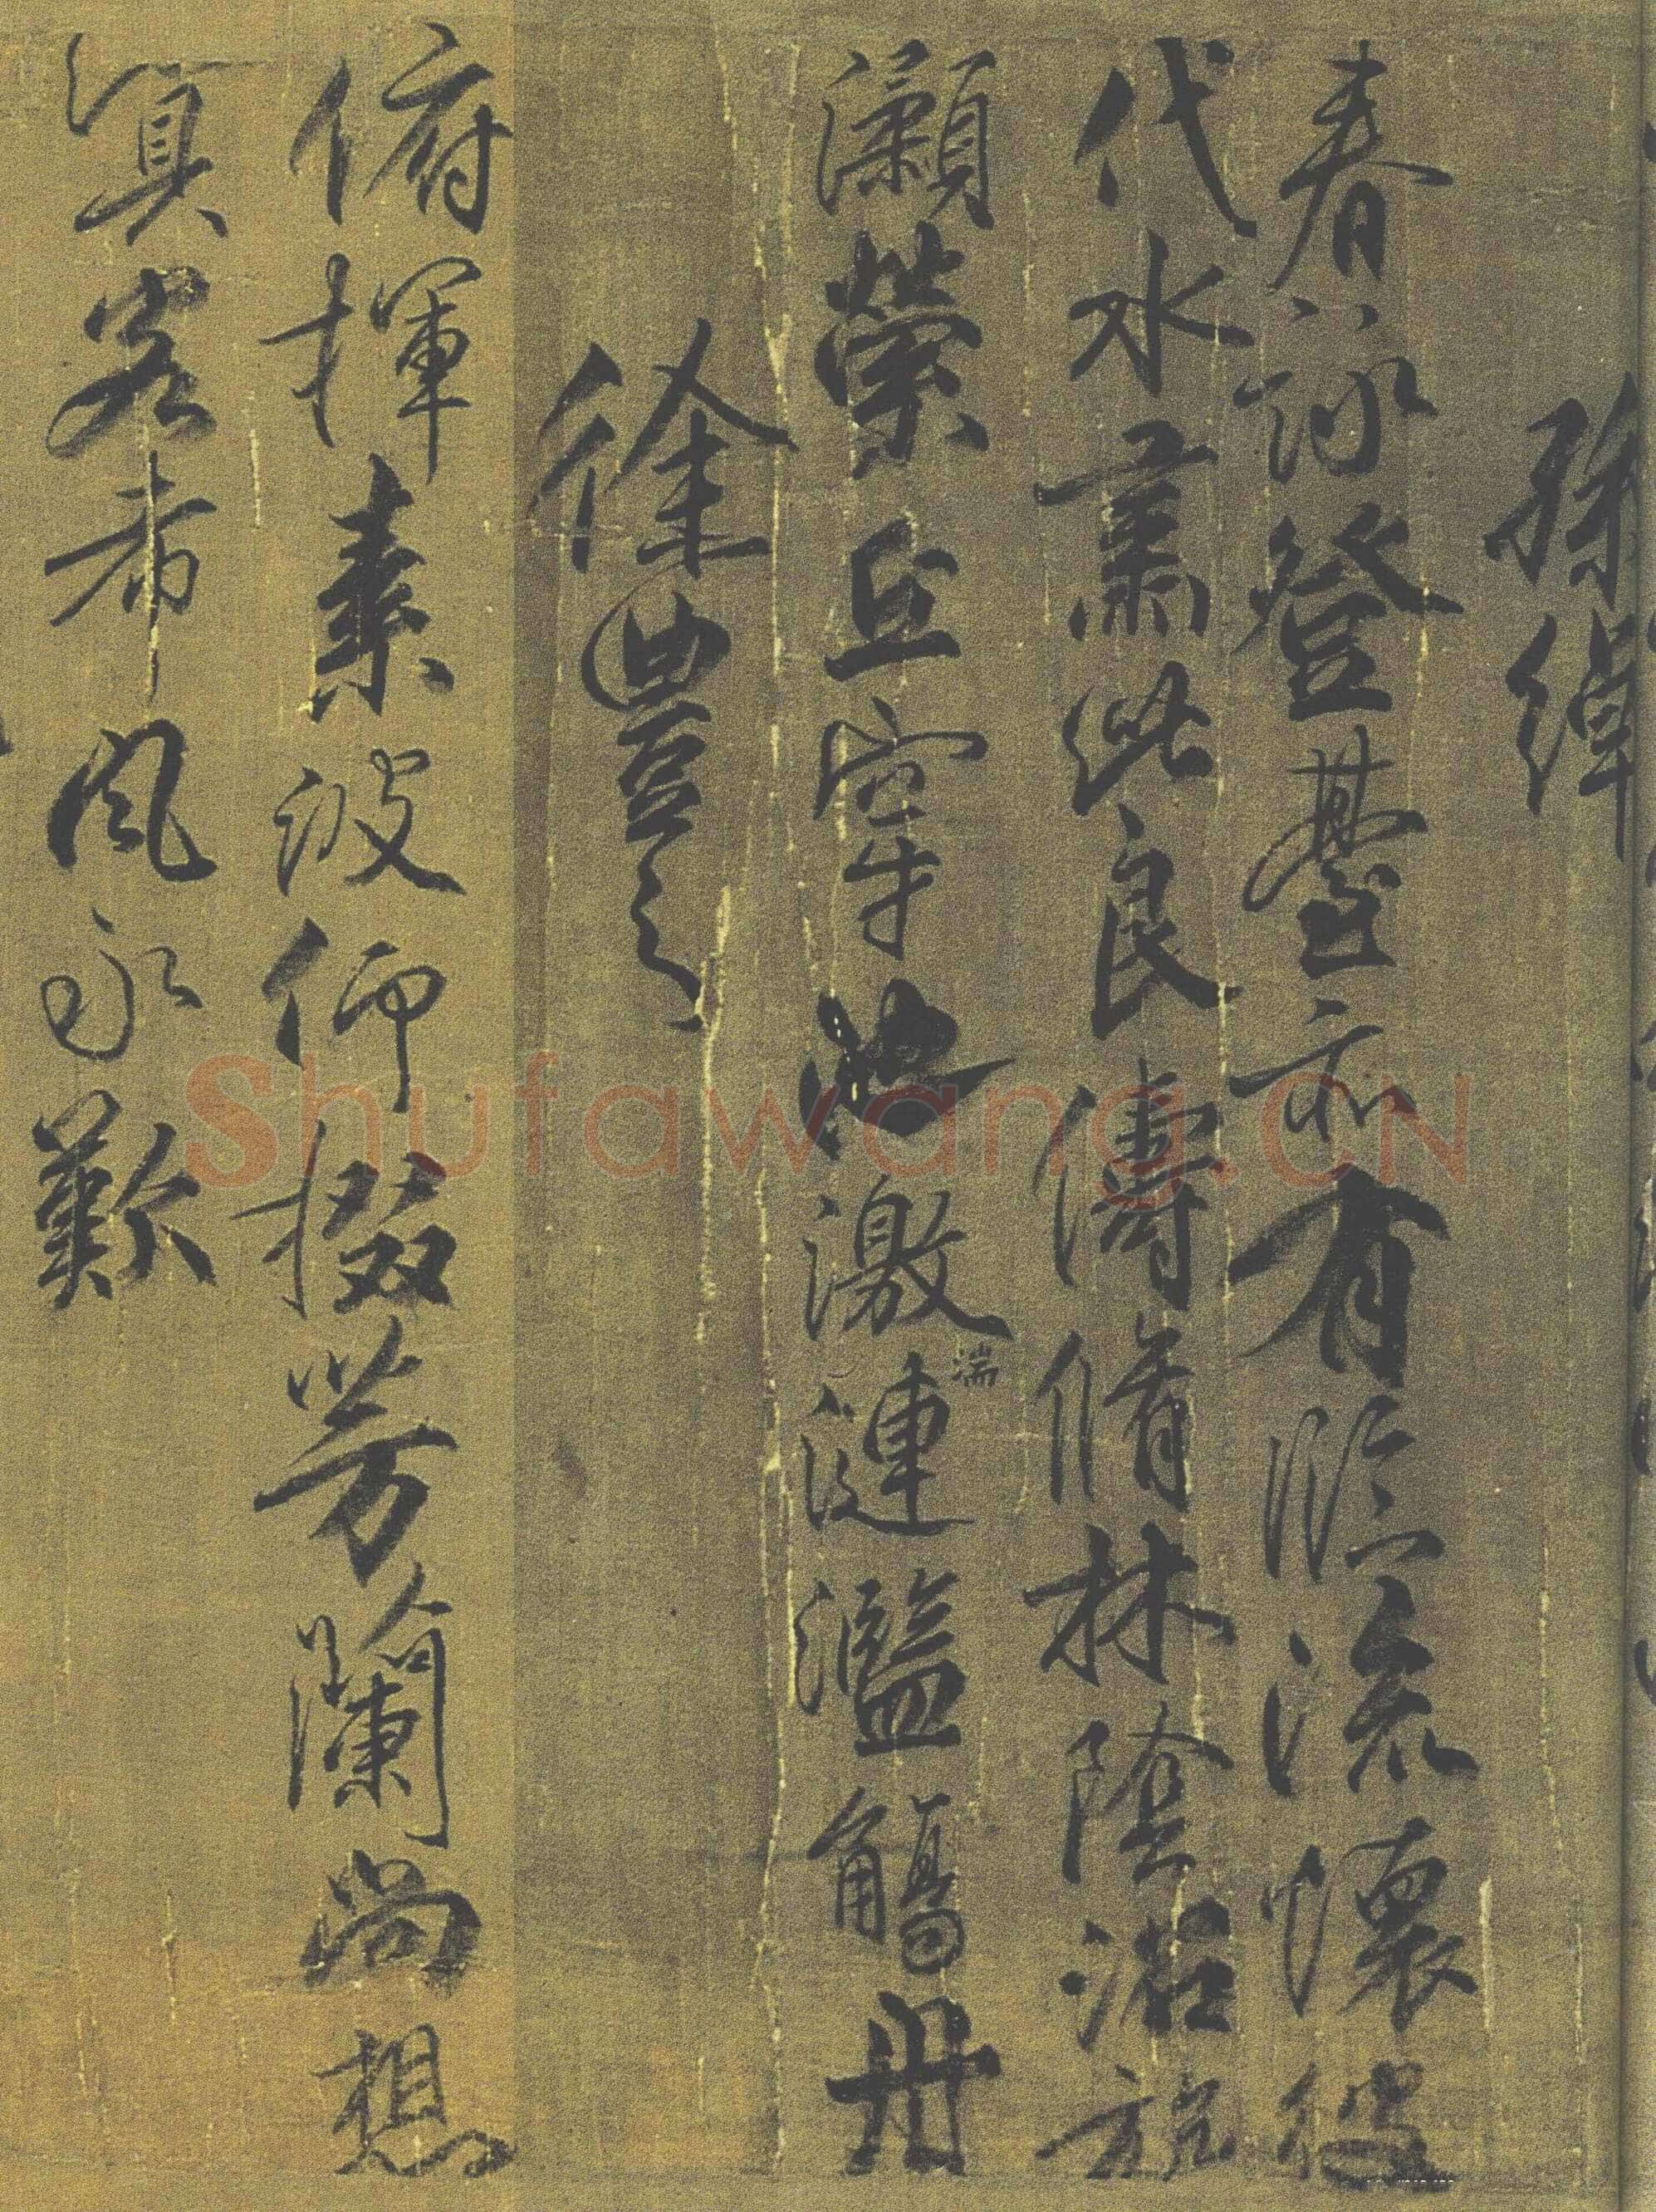 孫綽
春詠登臺亦有臨流懷彼
代水肅此良儔脩林陰沼旋
瀨縈丘穿池激湍漣濫觴舟
徐豐之
俯揮素波仰掇芳蘭尚想
冥客希風永歎
Shufawang.CN